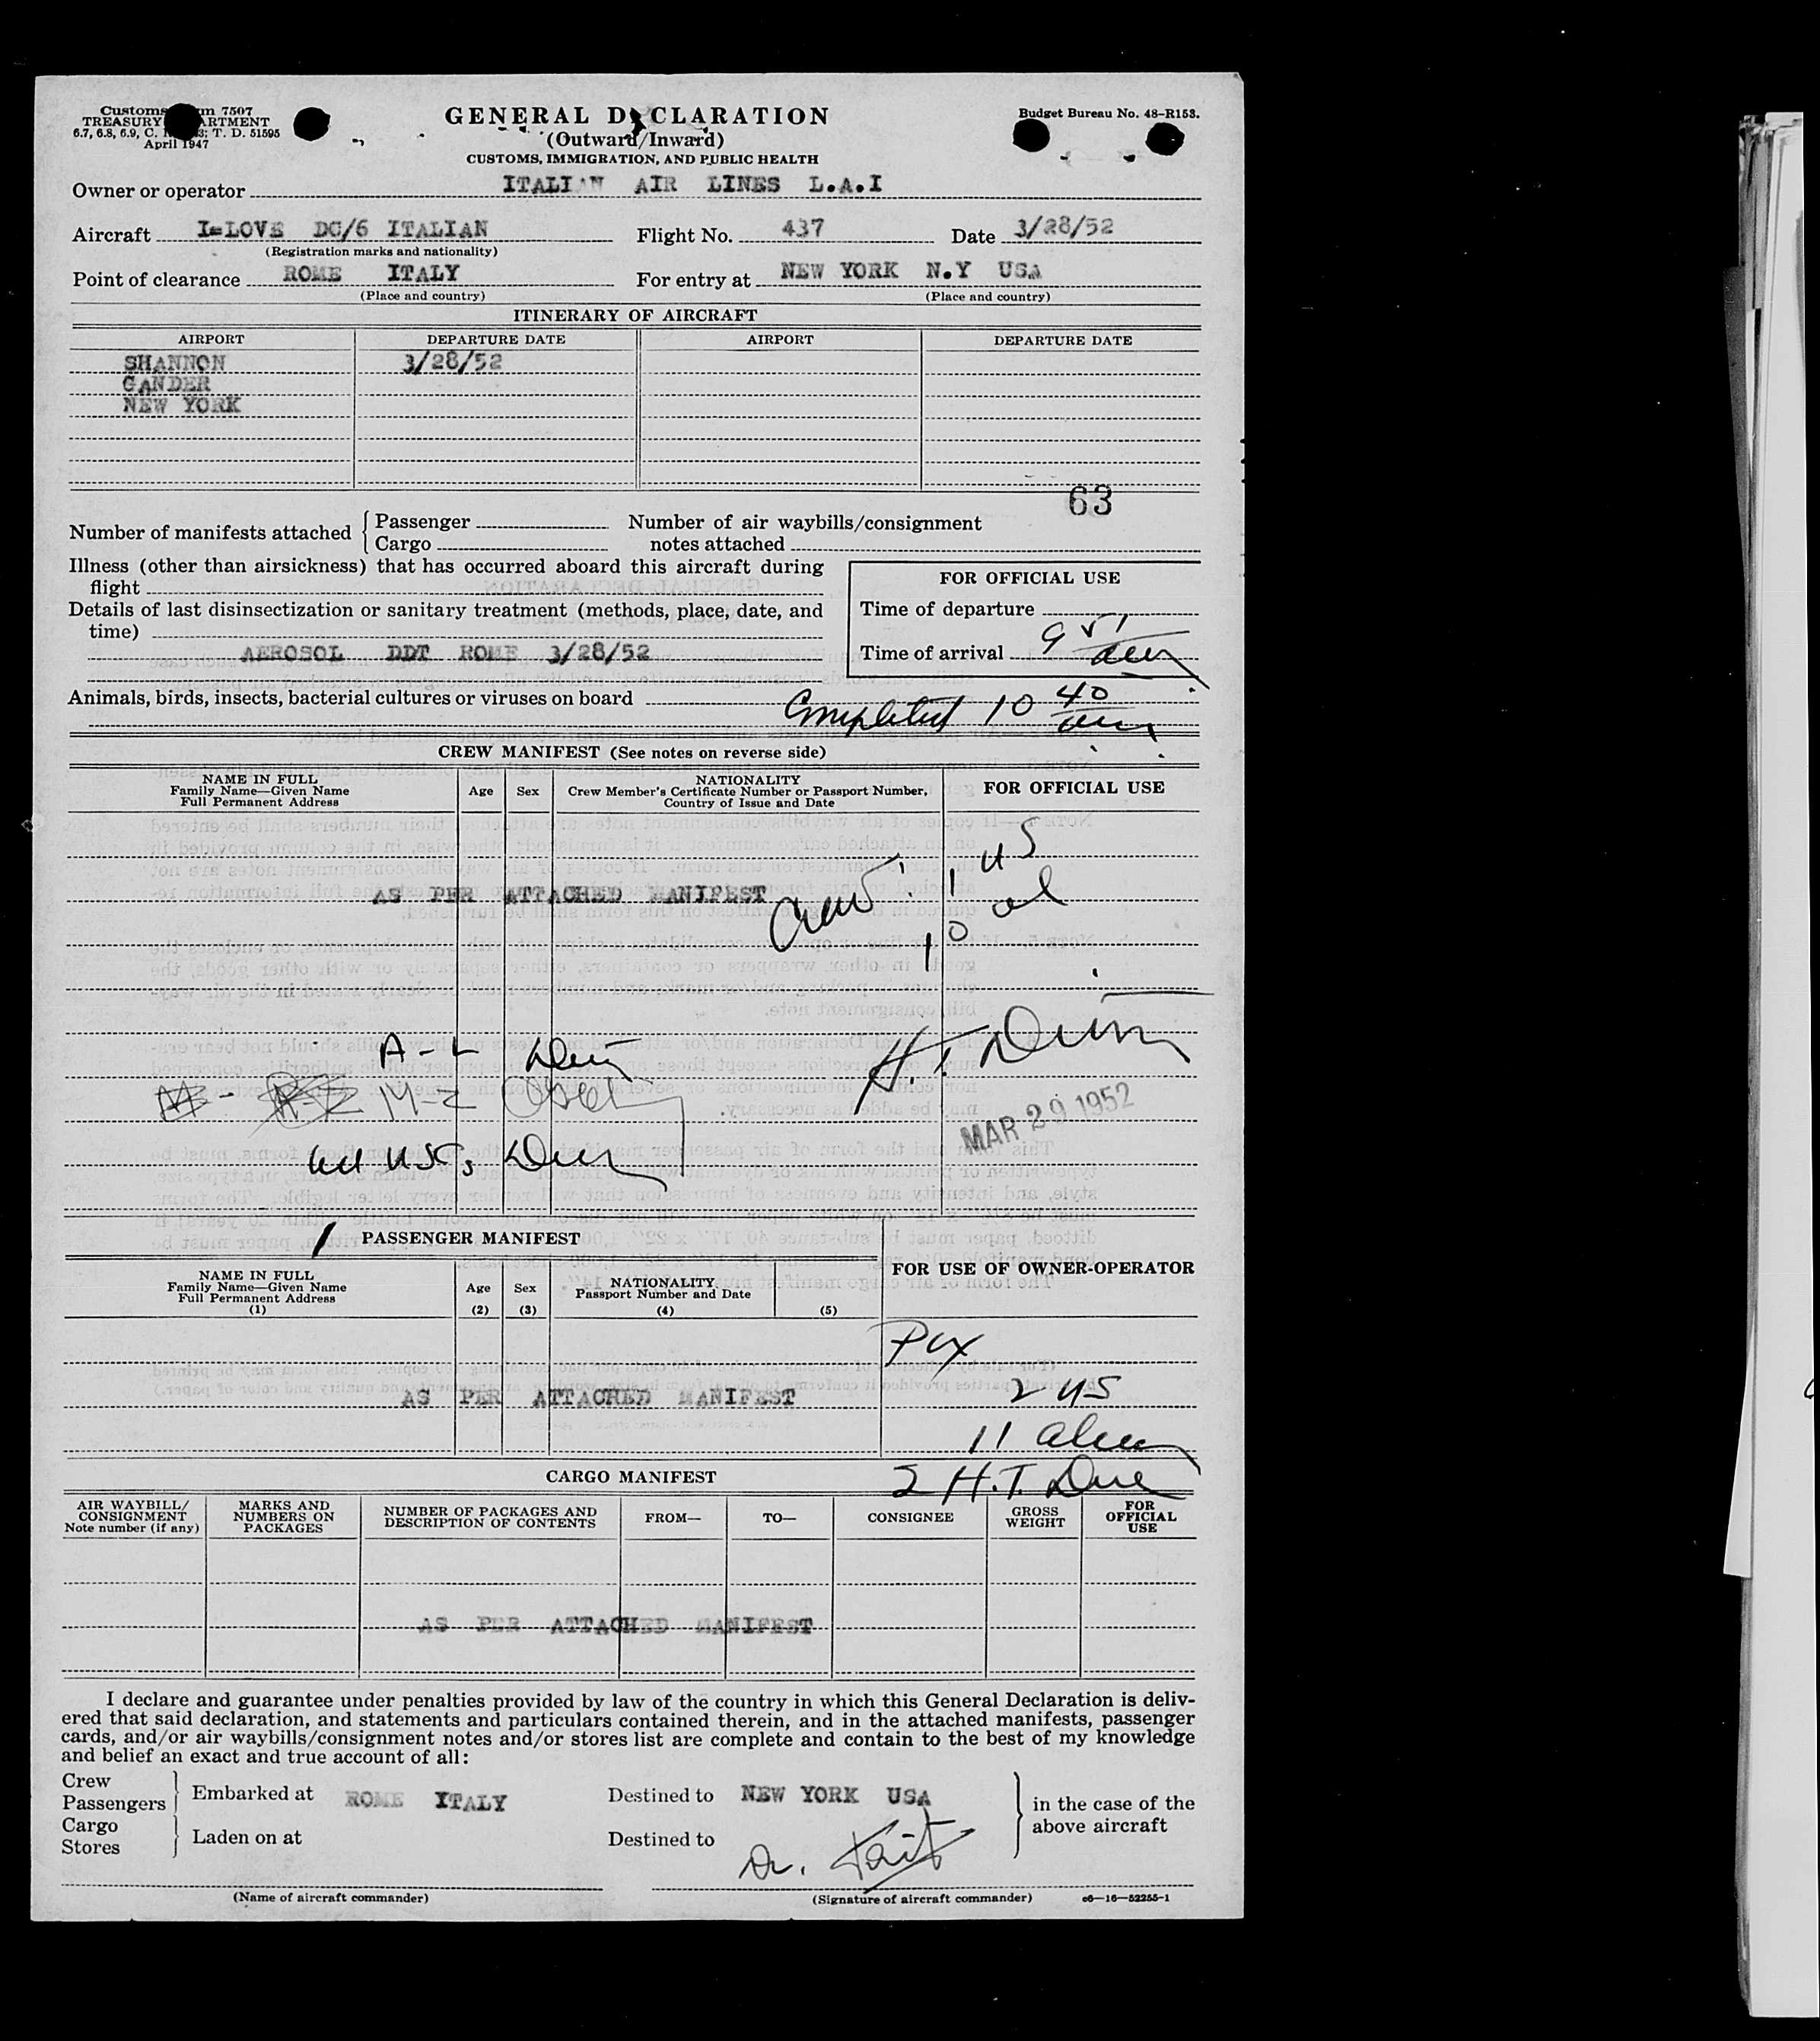 Customs Form 7507
TREASURY DEPARTMENT
6.7, 6.8, 6.9, C. ; T. D. 51595
April 1947
GENERAL DECLARATION
(Outward/Inward)
CUSTOMS, IMMIGRATION, AND PUBLIC HEALTH
Budget Bureau No. 48-R153.
Owner or operator ITALIAN AIR LINES L.A.I
Aircraft I=LOVE DC/6 ITALIAN Flight No. 437 Date 3/28/52
(Registration marks and nationality)
Point of clearance ROME ITALY For entry at NEW YORK N.Y USA
(Place and country) (Place and country)
ITINERARY OF AIRCRAFT
AIRPORT DEPARTURE DATE AIRPORT DEPARTURE DATE
SHANNON 3/28/52
GANDER
NEW YORK
63
Number of manifests attached { Passenger Number of air waybills/consignment
Cargo notes attached
Illness (other than airsickness) that has occurred aboard this aircraft during
flight
Details of last disinsectization or sanitary treatment (methods, place, date, and
time)
AEROSOL DDT ROME 3/28/52
FOR OFFICIAL USE
Time of departure
Time of arrival 9 51 am
Animals, birds, insects, bacterial cultures or viruses on board
Completed 10 40 am
CREW MANIFEST (See notes on reverse side)
NAME IN FULL
Family Name—Given Name
Full Permanent Address
Age Sex
NATIONALITY
Crew Member's Certificate Number or Passport Number,
Country of Issue and Date
FOR OFFICIAL USE
AS PER ATTACHED MANIFEST
Crew: 1 US
10 al
A-L
H. T. Dunn
M-Z
MAR 29 1952
PASSENGER MANIFEST
NAME IN FULL
Family Name—Given Name
Full Permanent Address
(1)
Age
(2)
Sex
(3)
NATIONALITY
Passport Number and Date
(4) (5)
FOR USE OF OWNER-OPERATOR
AS PER ATTACHED MANIFEST
Pax
2 US
11 alien
CARGO MANIFEST
AIR WAYBILL/
CONSIGNMENT
Note number (if any)
MARKS AND
NUMBERS ON
PACKAGES
NUMBER OF PACKAGES AND
DESCRIPTION OF CONTENTS
FROM— TO— CONSIGNEE
GROSS
WEIGHT
FOR
OFFICIAL
USE
AS PER ATTACHED MANIFEST
I declare and guarantee under penalties provided by law of the country in which this General Declaration is deliv-
ered that said declaration, and statements and particulars contained therein, and in the attached manifests, passenger
cards, and/or air waybills/consignment notes and/or stores list are complete and contain to the best of my knowledge
and belief an exact and true account of all:
Crew
Passengers } Embarked at ROME ITALY Destined to NEW YORK USA
Cargo
Stores } Laden on at Destined to
in the case of the
above aircraft
(Name of aircraft commander) (Signature of aircraft commander) c6—16—52255-1